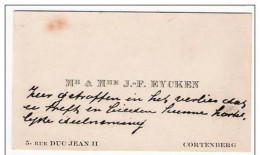 Mr & Mme J.-F. EYCKEN
Zeer getroffen in het verlies dat
er treft en bieden hunne harte
lijke deelneming
5, RUE DUC JEAN II CORTENBERG